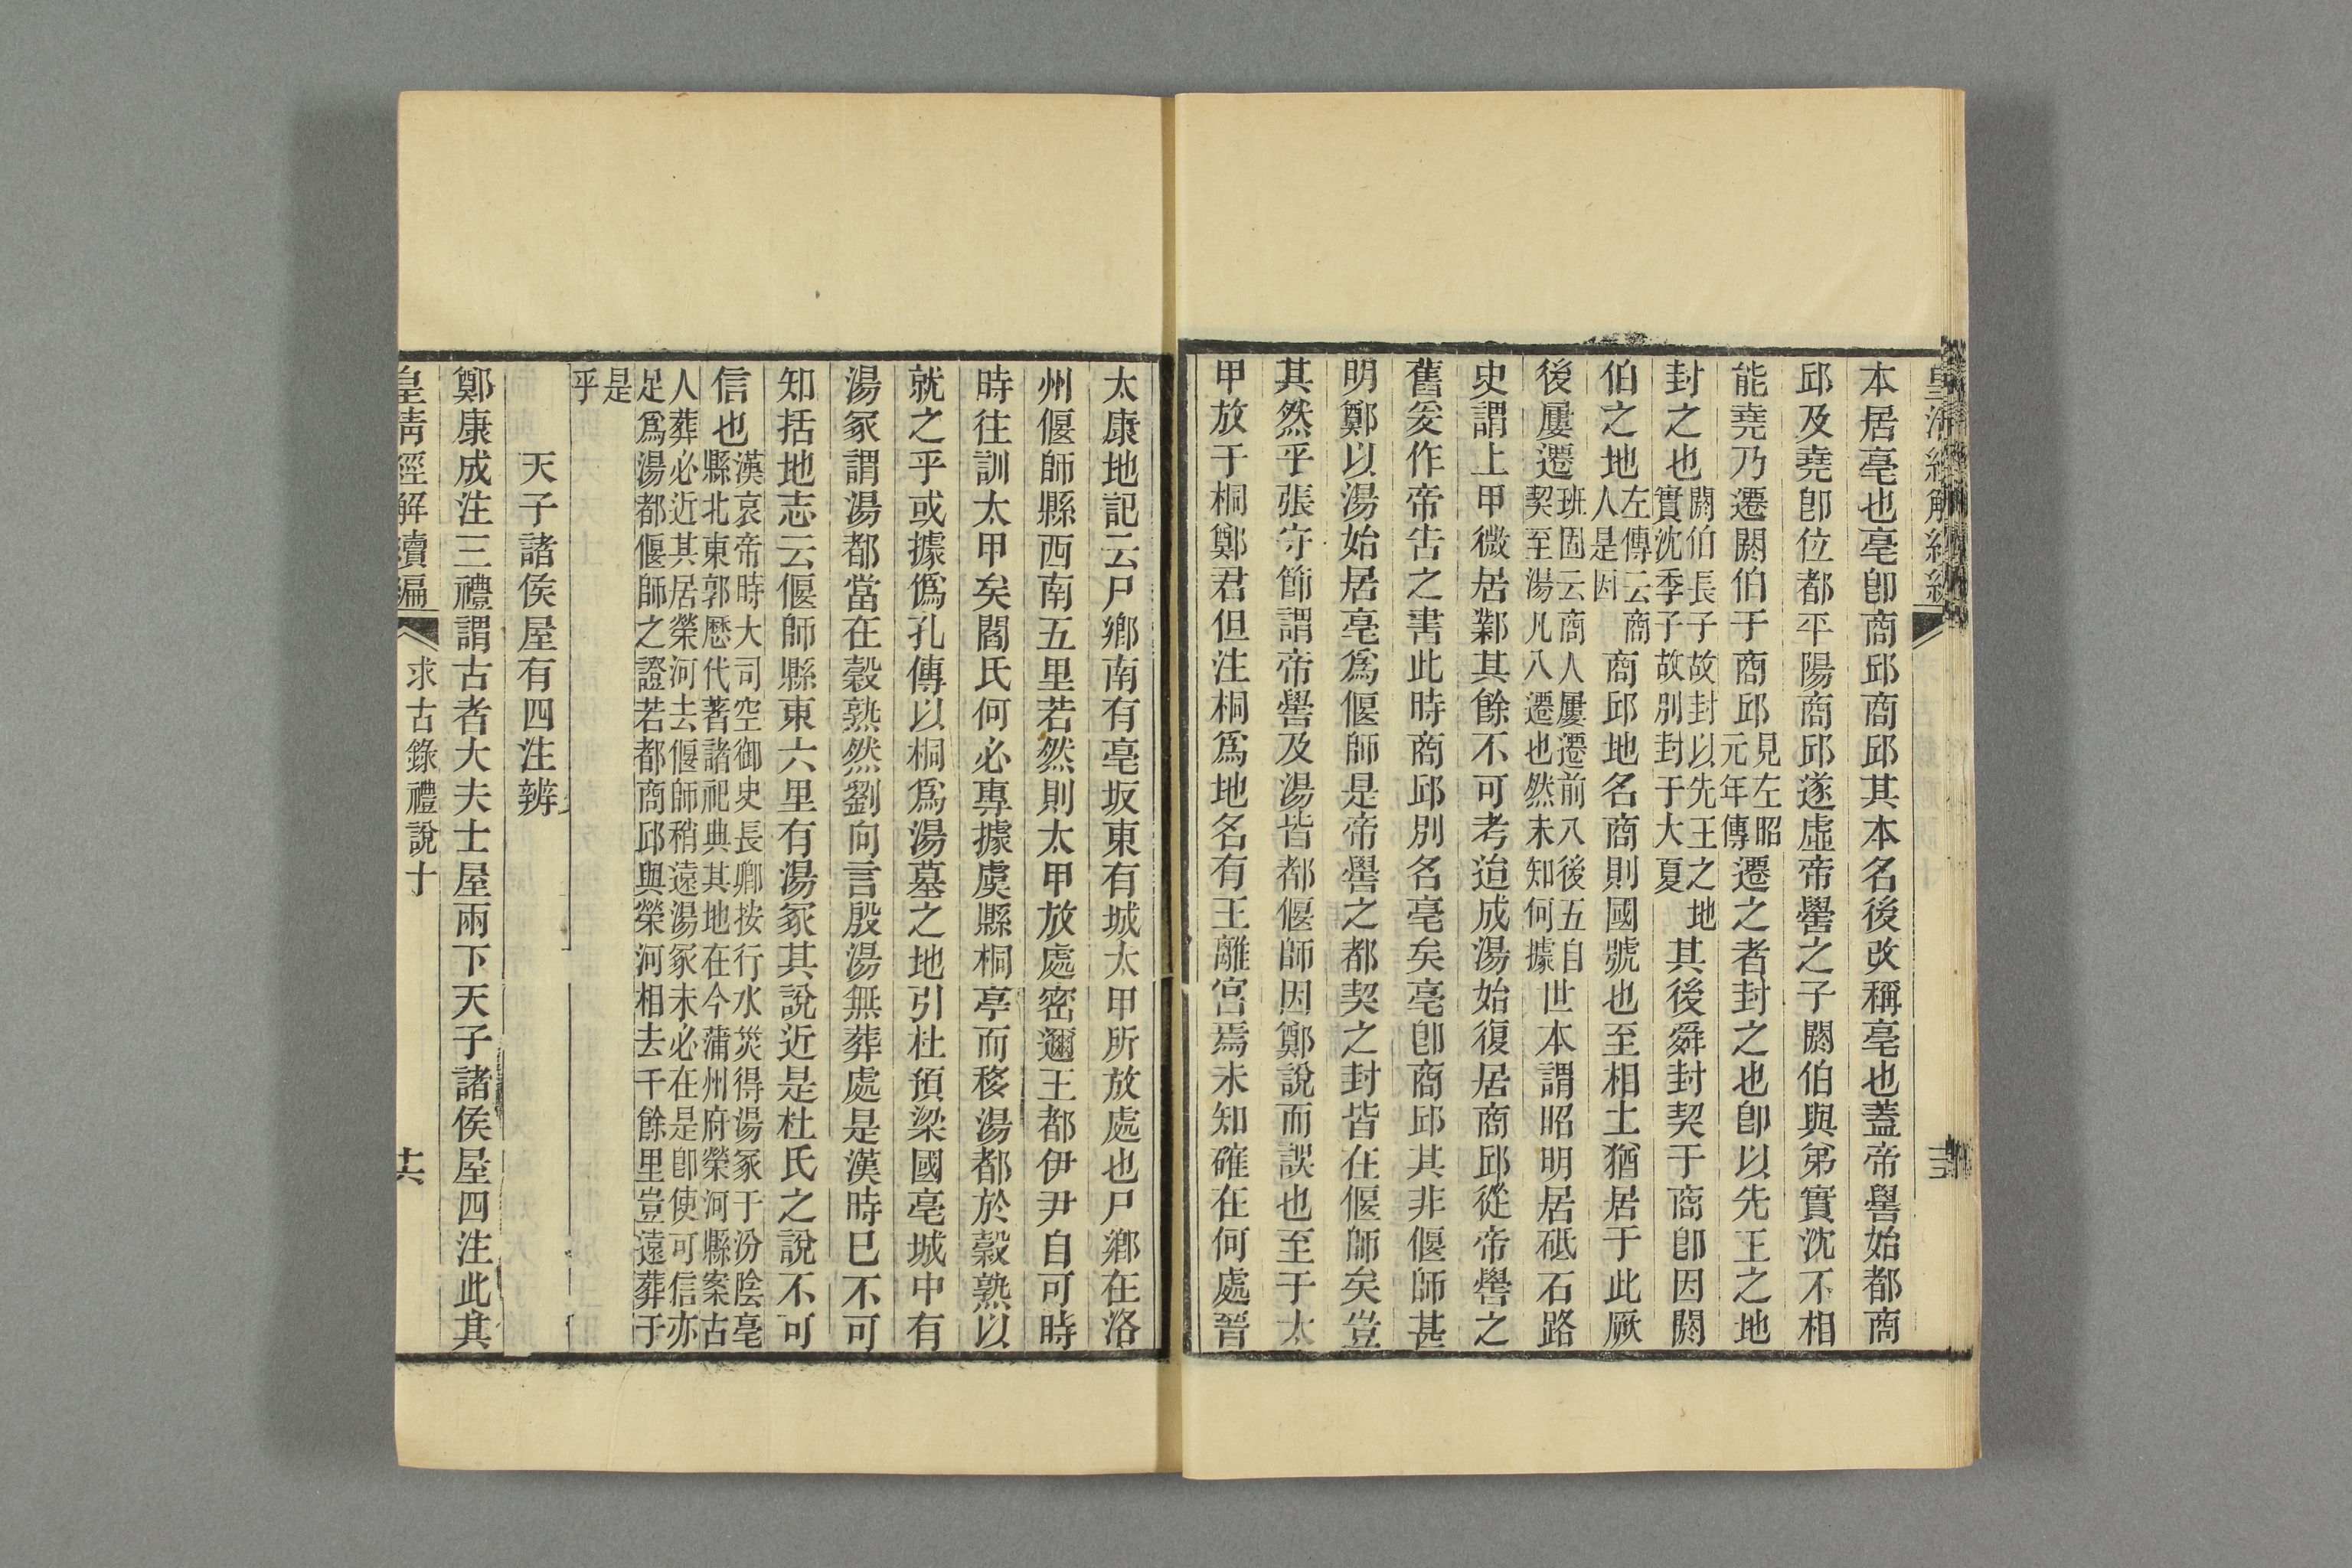 本居亳也亳卽商邱商邱其本名後改稱亳也蓋帝嚳始都商
邱及堯卽位都平陽商邱遂虛帝嚳之子閼伯與弟實沈不相
能堯乃遷閼伯于商邱見左昭元年傳遷之者封之也卽以先王之地
封之也閼伯長子故封以先王之地實沈季子故別封于大夏其後舜封契于商卽因閼
伯之地左傳云商人是因商邱地名商則國號也至相土猶居于此厥
後屢遷班固云商人屢遷前八後五自契至湯凡八遷也然未知何據世本謂昭明居砥石路
史謂上甲微居鄴其餘不可考迨成湯始復居商邱從帝嚳之
舊爰作帝告之書此時商邱別名亳矣亳卽商邱其非偃師甚
明鄭以湯始居亳爲偃師是帝嚳之都契之封皆在偃師矣豈
其然乎張守節謂帝嚳及湯皆都偃師因鄭說而誤也至于太
甲放于桐鄭君但注桐爲地名有王離宮焉未知確在何處晉
太康地記云尸鄉南有亳坂東有城太甲所放處也尸鄉在洛
州偃師縣西南五里若然則太甲放處密邇王都伊尹自可時
時往訓太甲矣閻氏何必專據虞縣桐亭而移湯都於穀熟以
就之乎或據僞孔傳以桐爲湯墓之地引杜預梁國亳城中有
湯冢謂湯都當在穀熟然劉向言殷湯無葬處是漢時已不可
知括地志云偃師縣東六里有湯冢其說近是杜氏之說不可
信也漢哀帝時大司空御史長卿按行水災得湯冢于汾陰亳縣北東郭歷代著諸祀典其地在今蒲州府榮河縣案古
人葬必近其居榮河去偃師稍遠湯冢未必在是卽使可信亦足爲湯都偃師之證若都商邱與榮河相去千餘里豈遠葬于
是乎
天子諸侯屋有四注辨
鄭康成注三禮謂古者大夫士屋兩下天子諸侯屋四注此其
皇清經解續編
求古錄禮說十
十六